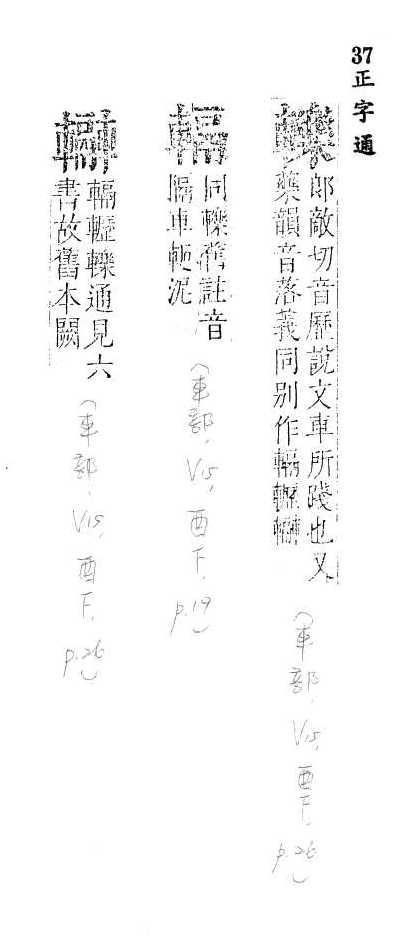 37正字通
轢郎敵切音歷說文車所踐也又
藥韻音落義同別作轢
(車部，V15，酉下，p.26)
輻同轢舊註音
隔車軛泥
(車部，V15，酉下，p.19)
轢通見六
書故舊本闕
(車部，V15，酉下，p.26)